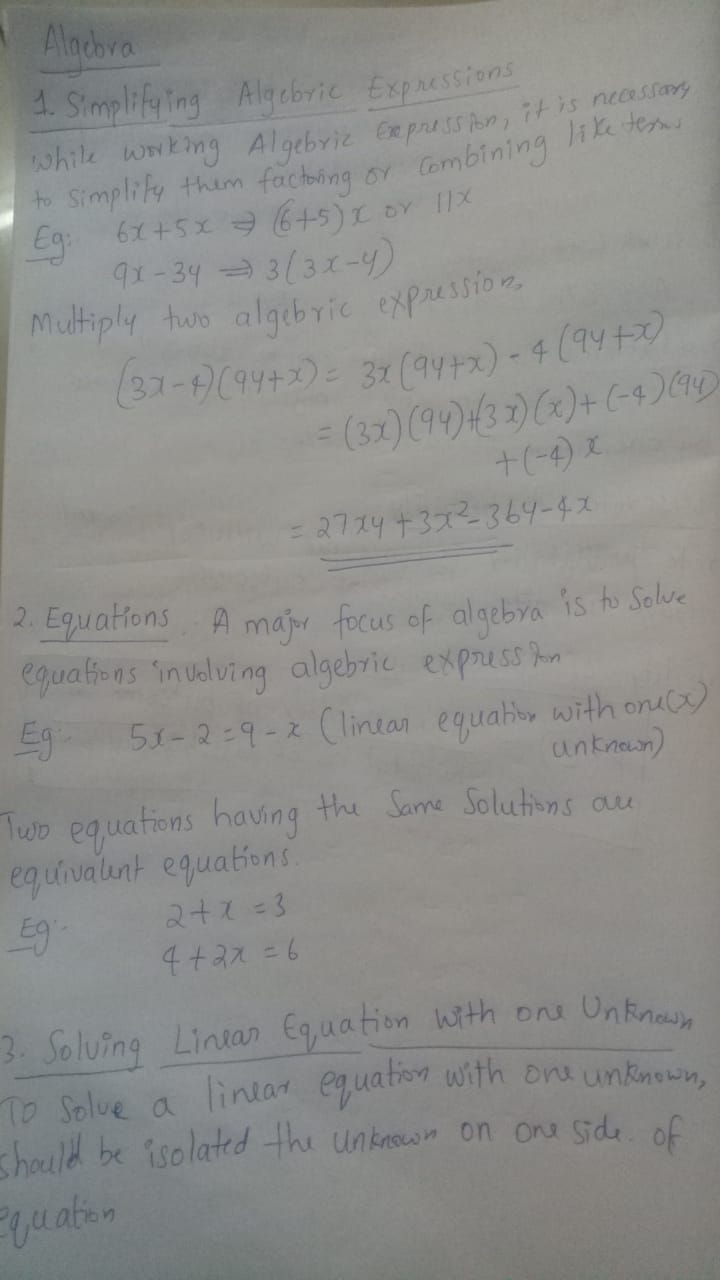 Algebra
1. Simplifying Algebric Expressions
While working Algebric Expression, it is necessary
to simplify them factoring or Combining like terms
Eg: 6x+5x ⇒ (6+5)x or 11x
9x-3y ⇒ 3(3x-y)
Multiply two algebric expression.
(3x-4)(9y+x) = 3x(9y+x) - 4(9y+x)
= (3x)(9y)+(3x)(x)+(-4)(9y)
+(-4)x
= 27xy+3x²-36y-4x
2. Equations. A major focus of algebra is to Solve
equations involving algebric expression
Eg:- 5x-2=9-x (linear equation with one(x)
unknown)
Two equations having the Same Solutions are
equivalent equations.
Eg:- 2+x=3
4+2x=6
3. Solving Linear Equation with one Unknown
To Solve a linear equation with one unknown,
should be isolated the unknown on one side of
equation